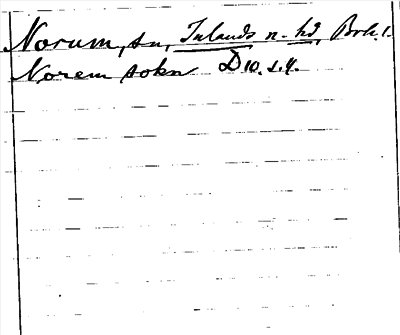 Norum, sn, Inlands n. hd, Boh. l.
Norem sokn D10. s. 4.